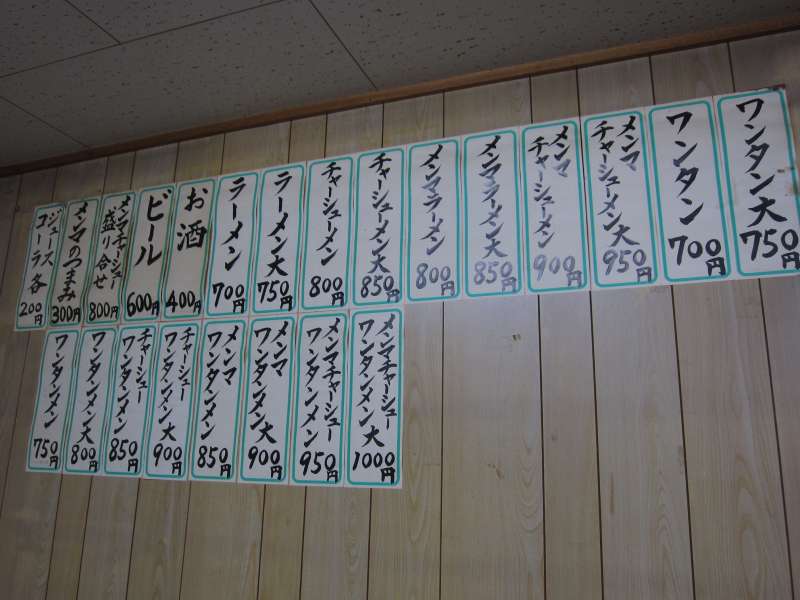 ワンタン大
750円
ワンタン
700円
メンマ
チャーシューメン大
950円
メンマ
チャーシューメン
900円
メンマラーメン大
850円
メンマラーメン
800円
チャーシューメン大
850円
チャーシューメン
800円
ラーメン大
750円
ラーメン
700円
お酒
400円
ビール
600円
メンマチャーシュー
盛り合せ
800円
メンマのつまみ
300円
ジュース
コーラ各
200円
メンマチャーシュー
ワンタンメン大
1000円
メンマチャーシュー
ワンタンメン
950円
メンマ
ワンタンメン大
900円
メンマ
ワンタンメン
850円
チャーシュー
ワンタンメン大
900円
チャーシュー
ワンタンメン
850円
ワンタンメン大
800円
ワンタンメン
750円